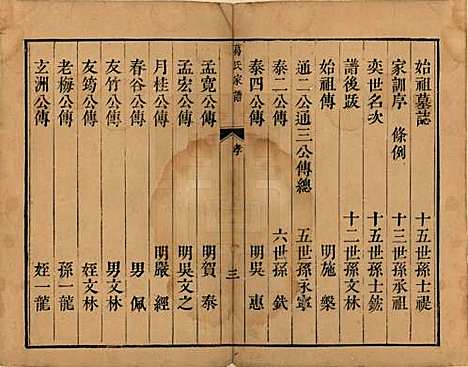 始祖墓誌 十五世孫士禔
家訓序 條例 十三世孫承祖
奕世名次 十五世孫士鋐
譜後跋 十二世孫文林
始祖傳 明施槃
通二公通三公傳總 五世孫永寧
泰二公傳 六世孫欽
泰四公傳 明吳惠
氏家譜 孝 三
孟寬公傳 明賀泰
孟宏公傳 明吳文之
月桂公傳 明嚴經
春谷公傳 男佩
友竹公傳 男文林
友筠公傳 姪文林
老梅公傳 孫一龍
玄洲公傳 姪一龍